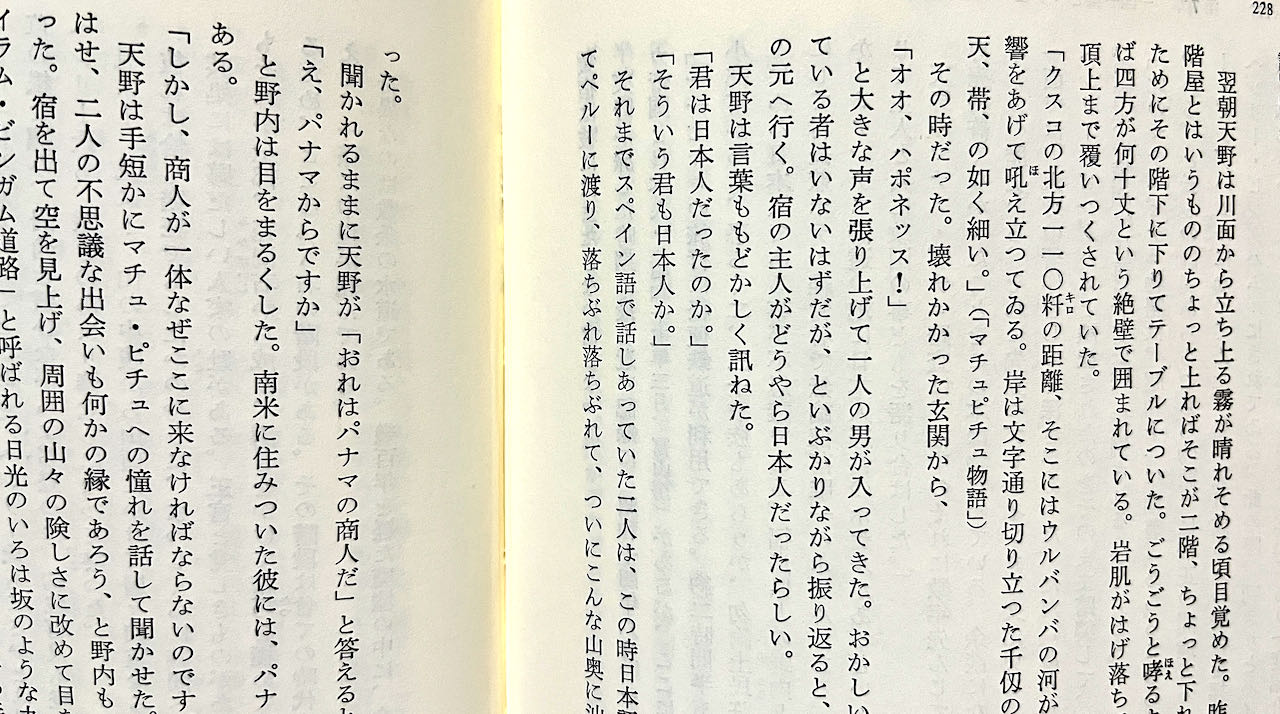 228
翌朝天野は川面から立ち上る霧が晴れそめる頃目覚めた。昨
階屋とはいうもののちょっと上ればそこが二階、ちょっと下れ
ためにその階下に下りてテーブルについた。ごうごうと哮ると
ば四方が何十丈という絶壁で囲まれている。岩肌がはげ落ち、
頂上まで覆いつくされていた。
「クスコの北方一一〇粁の距離、そこにはウルバンバの河が
響をあげて吼え立つてゐる。岸は文字通り切り立つた千仭の
天、帯、の如く細い。」(「マチュピチュ物語」)
その時だった。壊れかかった玄関から、
「オオ、ハポネッス!」
と大きな声を張り上げて一人の男が入ってきた。おかしい
ている者はいないはずだが、といぶかりながら振り返ると、
の元へ行く。宿の主人がどうやら日本人だったらしい。
天野は言葉ももどかしく訊ねた。
「君は日本人だったのか。」
「そういう君も日本人か。」
それまでスペイン語で話しあっていた二人は、この時日本語
てペルーに渡り、落ちぶれ落ちぶれて、ついにこんな山奥に辿
った。
聞かれるままに天野が「おれはパナマの商人だ」と答えると
「え、パナマからですか」
と野内は目をまるくした。南米に住みついた彼には、パナ
ある。
「しかし、商人が一体なぜここに来なければならないのです
天野は手短かにマチュ・ピチュへの憧れを話して聞かせた。
はせ、二人の不思議な出会いも何かの縁であろう、と野内も
った。宿を出て空を見上げ、周囲の山々の険しさに改めて目を
イラム・ビンガム道路」と呼ばれる日光のいろは坂のような